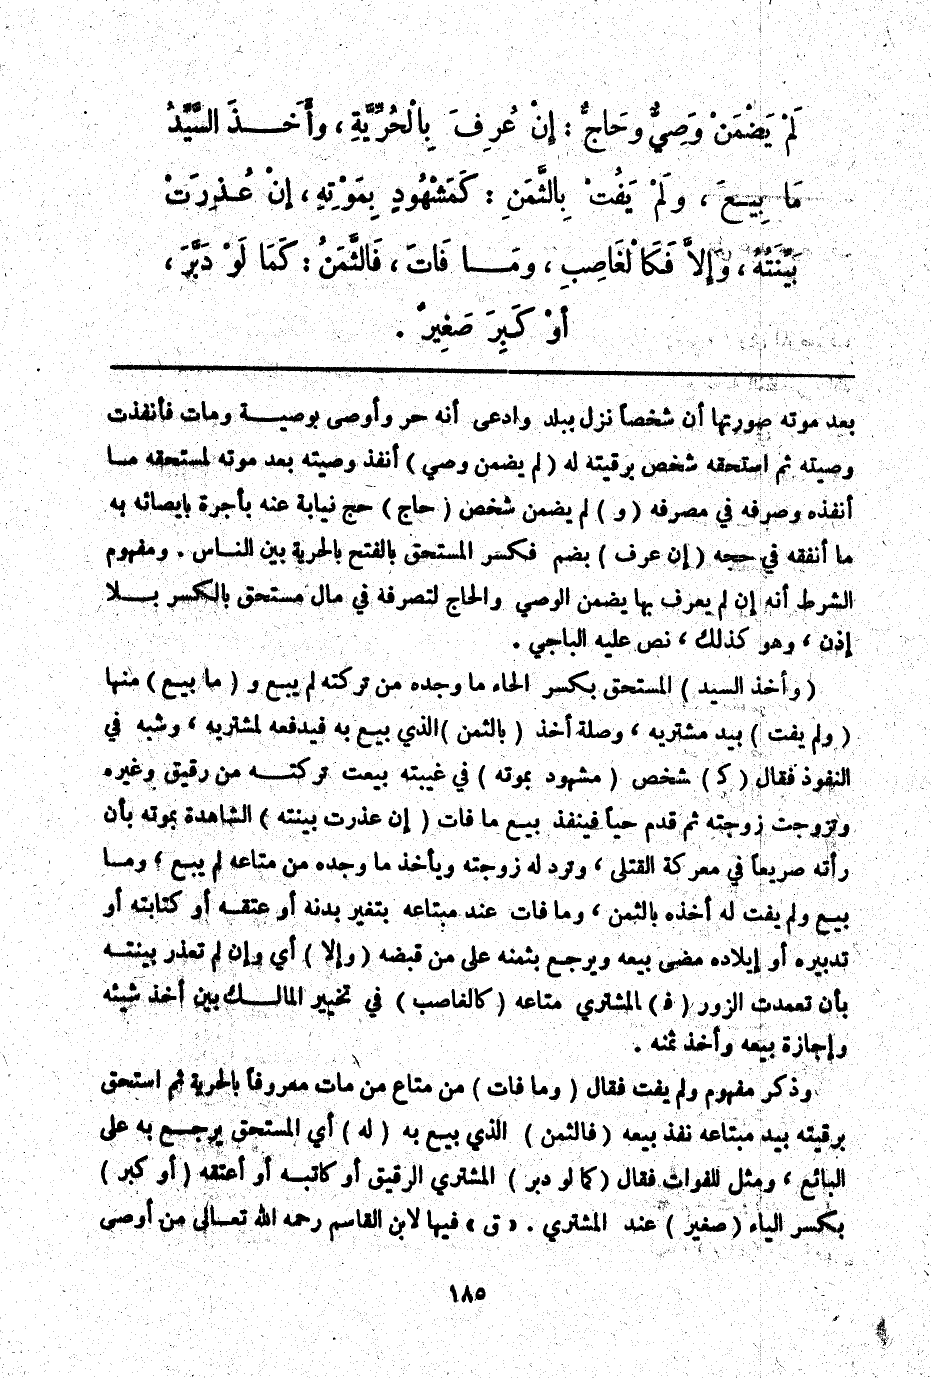 لَمْ يَضْمَنْ وَصِيٌّ وحَاجٌّ : إنْ عُرِفَ بِالْحُرِّيَّةِ ، وأَخَـــذَ السَّيِّدُ
مَا بِيـعَ ، ولَمْ يَفُتْ بِالثَّمَنِ : كَمَشْهُودٍ بِمَوْتِهِ ، إنْ عُـذِرَتْ
بَيِّنَتُهُ ، وَإلاَّ فَكَالْغَاصِبِ ، ومَـــا فَاتَ ، فَالثَّمَنُ : كَمَا لَوْ دَبَّرَ ،
أوْ كَبِرَ صَغِيرٌ .
بعد موته صورتها أن شخصاً نزل ببلد وادعى أنه حر وأوصى بوصيـــة ومات فأنفذت
وصيته ثم استحقه شخص برقيته له ( لم يضمن وصي ) أنفذ وصيته بعد موته لمستحقه مــا
أنفذه وصرفه في مصرفه ( و ) لم يضمن شخص ( حاج ) حج نيابة عنه بأجرة بإيصائه به
ما أنفقه في حجه ( إن عرف ) بضم فكسر المستحق بالفتح بالحرية بين النـاس . ومفهوم
الشرط أنه إن لم يعرف بها يضمن الوصي والحاج لتصرفه في مال مستحق بالكسر بـــلا
إذن ، وهو كذلك ، نص عليه الباجي .
( وأخذ السيد ) المستحق بكسر الحاء ما وجده من تركته لم يبـع و ( ما بيـع ) منها
( ولم يفت ) بيد مشتريه ، وصلة أخذ ( بالثمن )الذي بيـع به فيدفعه لمشتريه ، وشبه في
النفوذ فقال ( كـ ) شخص ( مشهود بموته ) في غيبته بيعت تركتـــه من رقيق وغيره
وتزوجت زوجته ثم قدم حياً فينفذ بيـع ما فات ( إن عذرت بينته ) الشاهدة بموته بأن
رأته صريعاً في معركة القتلى ، وترد له زوجته ويأخذ ما وجده من متاعه لم يبع ، ومــا
بيـع ولم يفت له أخذه بالثمن ، وما فات عند مبتاعه بتغير بدنه أو عتقـه أو كتابته أو
تدبيره أو إيلاده مضى بيعه ويرجـع بثمنه على من قبضه ( وإلا ) أي وإن لم تعذر بينتــه
بأن تعمدت الزور ( فـ ) المشتري متاعه ( كالغاصب ) في تخيير المالـــك بين أخذ شيئه
وإجازة بيعه وأخذ ثمنه .
وذكر مفهوم ولم يفت فقال ( وما فات ) من متاع من مات معروفاً بالحرية ثم استحق
برقيته بيد مبتاعه نفذ بيعه ( فالثمن ) الذي بيـع به ( له ) أي المستحق يرجـــع به على
البائع ، ومثل للفوات فقال ( كما لو دبر ) المشتري الرقيق أو كاتبـه أو أعتقه ( أو كبر )
بكسر الباء ( صغير ) عند المشتري . « ق » فيها لابن القاسم رحمه الله تعـالى من أوصى
١٨٥